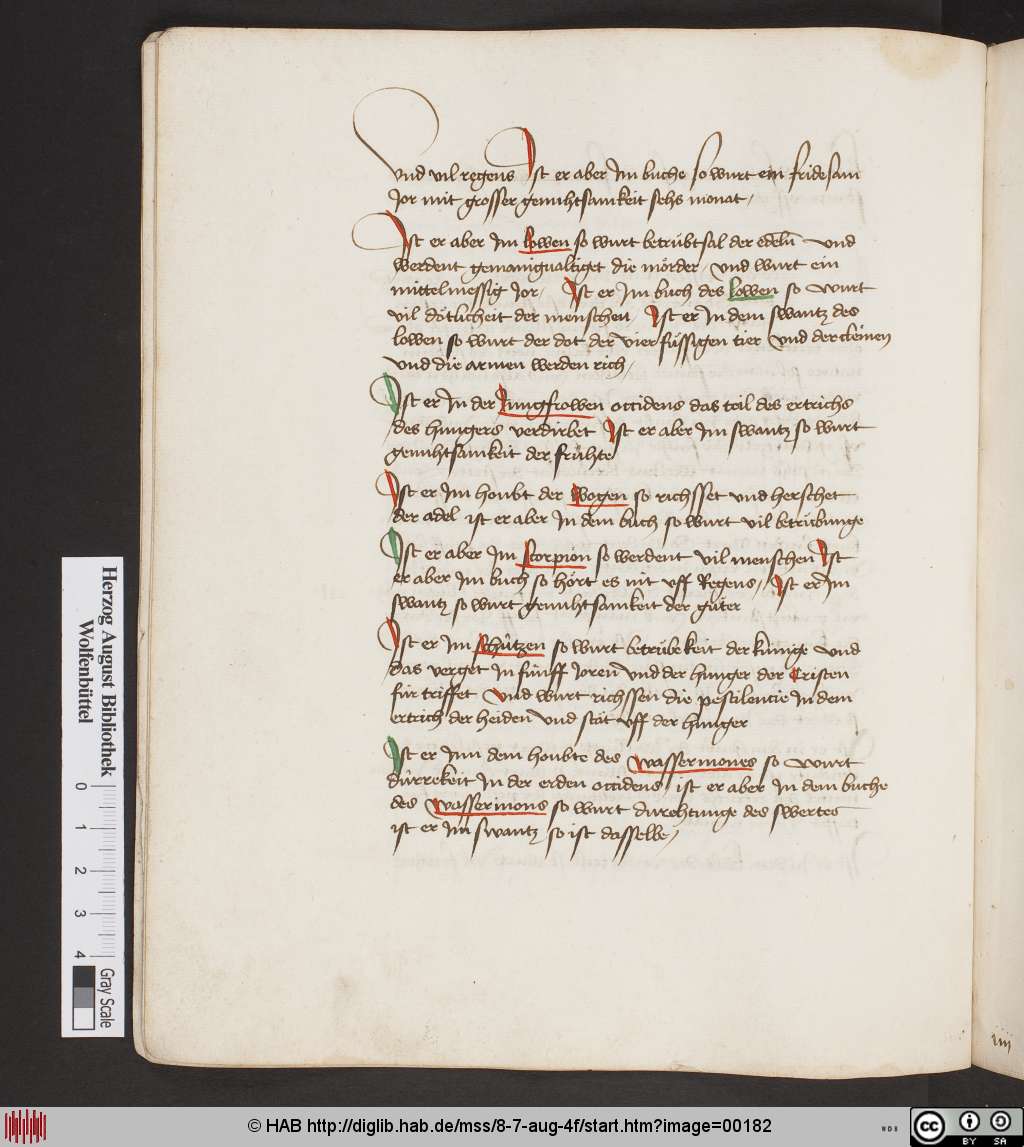 vnd vil regens Ist er aber Im buche so wurt ein fridesam
Jor mit grosser genuhtsamkeit sehs monat
Ist er aber Im lowen so wurt betrübtsal der edelū vnd
werdent gemanigualtiget die mörder vnd wurt ein
mittelmessig Jor Ist er Im buch des lowen so wurt
vil dötlicheit der menschen Ist er In dem swantz des
lowen so wurt der dot der vier füssigen tier vnd der cleinen
vnd die armen werden rich
Ist er In der Jungfrowen occidens das teil des ertrichs
des hungers verdirbet Ist er aber Im swantz so wurt
genuhtsamkeit der frühte
Ist er Im houbt der wogen so richsset vnd herschet
der adel ist er aber In dem buch so wurt vil betrübunge
Ist er aber Im scorpion so werdent vil menschen Ist
er aber Im buch so hört es nit vff Regens Ist er Im
swantz so wurt genuhtsamkeit der güter
Ist er Im schützen so wurt betrübekeit der künige vnd
das verget In fünff Joren vnd der hunger der Cristen
für triffet vnd wurt richssen die pestilencie In dem
ertrich der heiden vnd stät vff der hunger
Ist er Inn dem houbte des wassermones so wurt
dürrekeit In der erden occidens ist er aber In dem buche
des wassermons so wurt durehtunge des swertes
ist er Im swantz so ist dasselbe
Herzog August Bibliothek
Wolfenbüttel
0 1 2 3 4
Gray Scale
© HAB http://diglib.hab.de/mss/8-7-aug-4f/start.htm?image=00182
WDB
cc BY SA